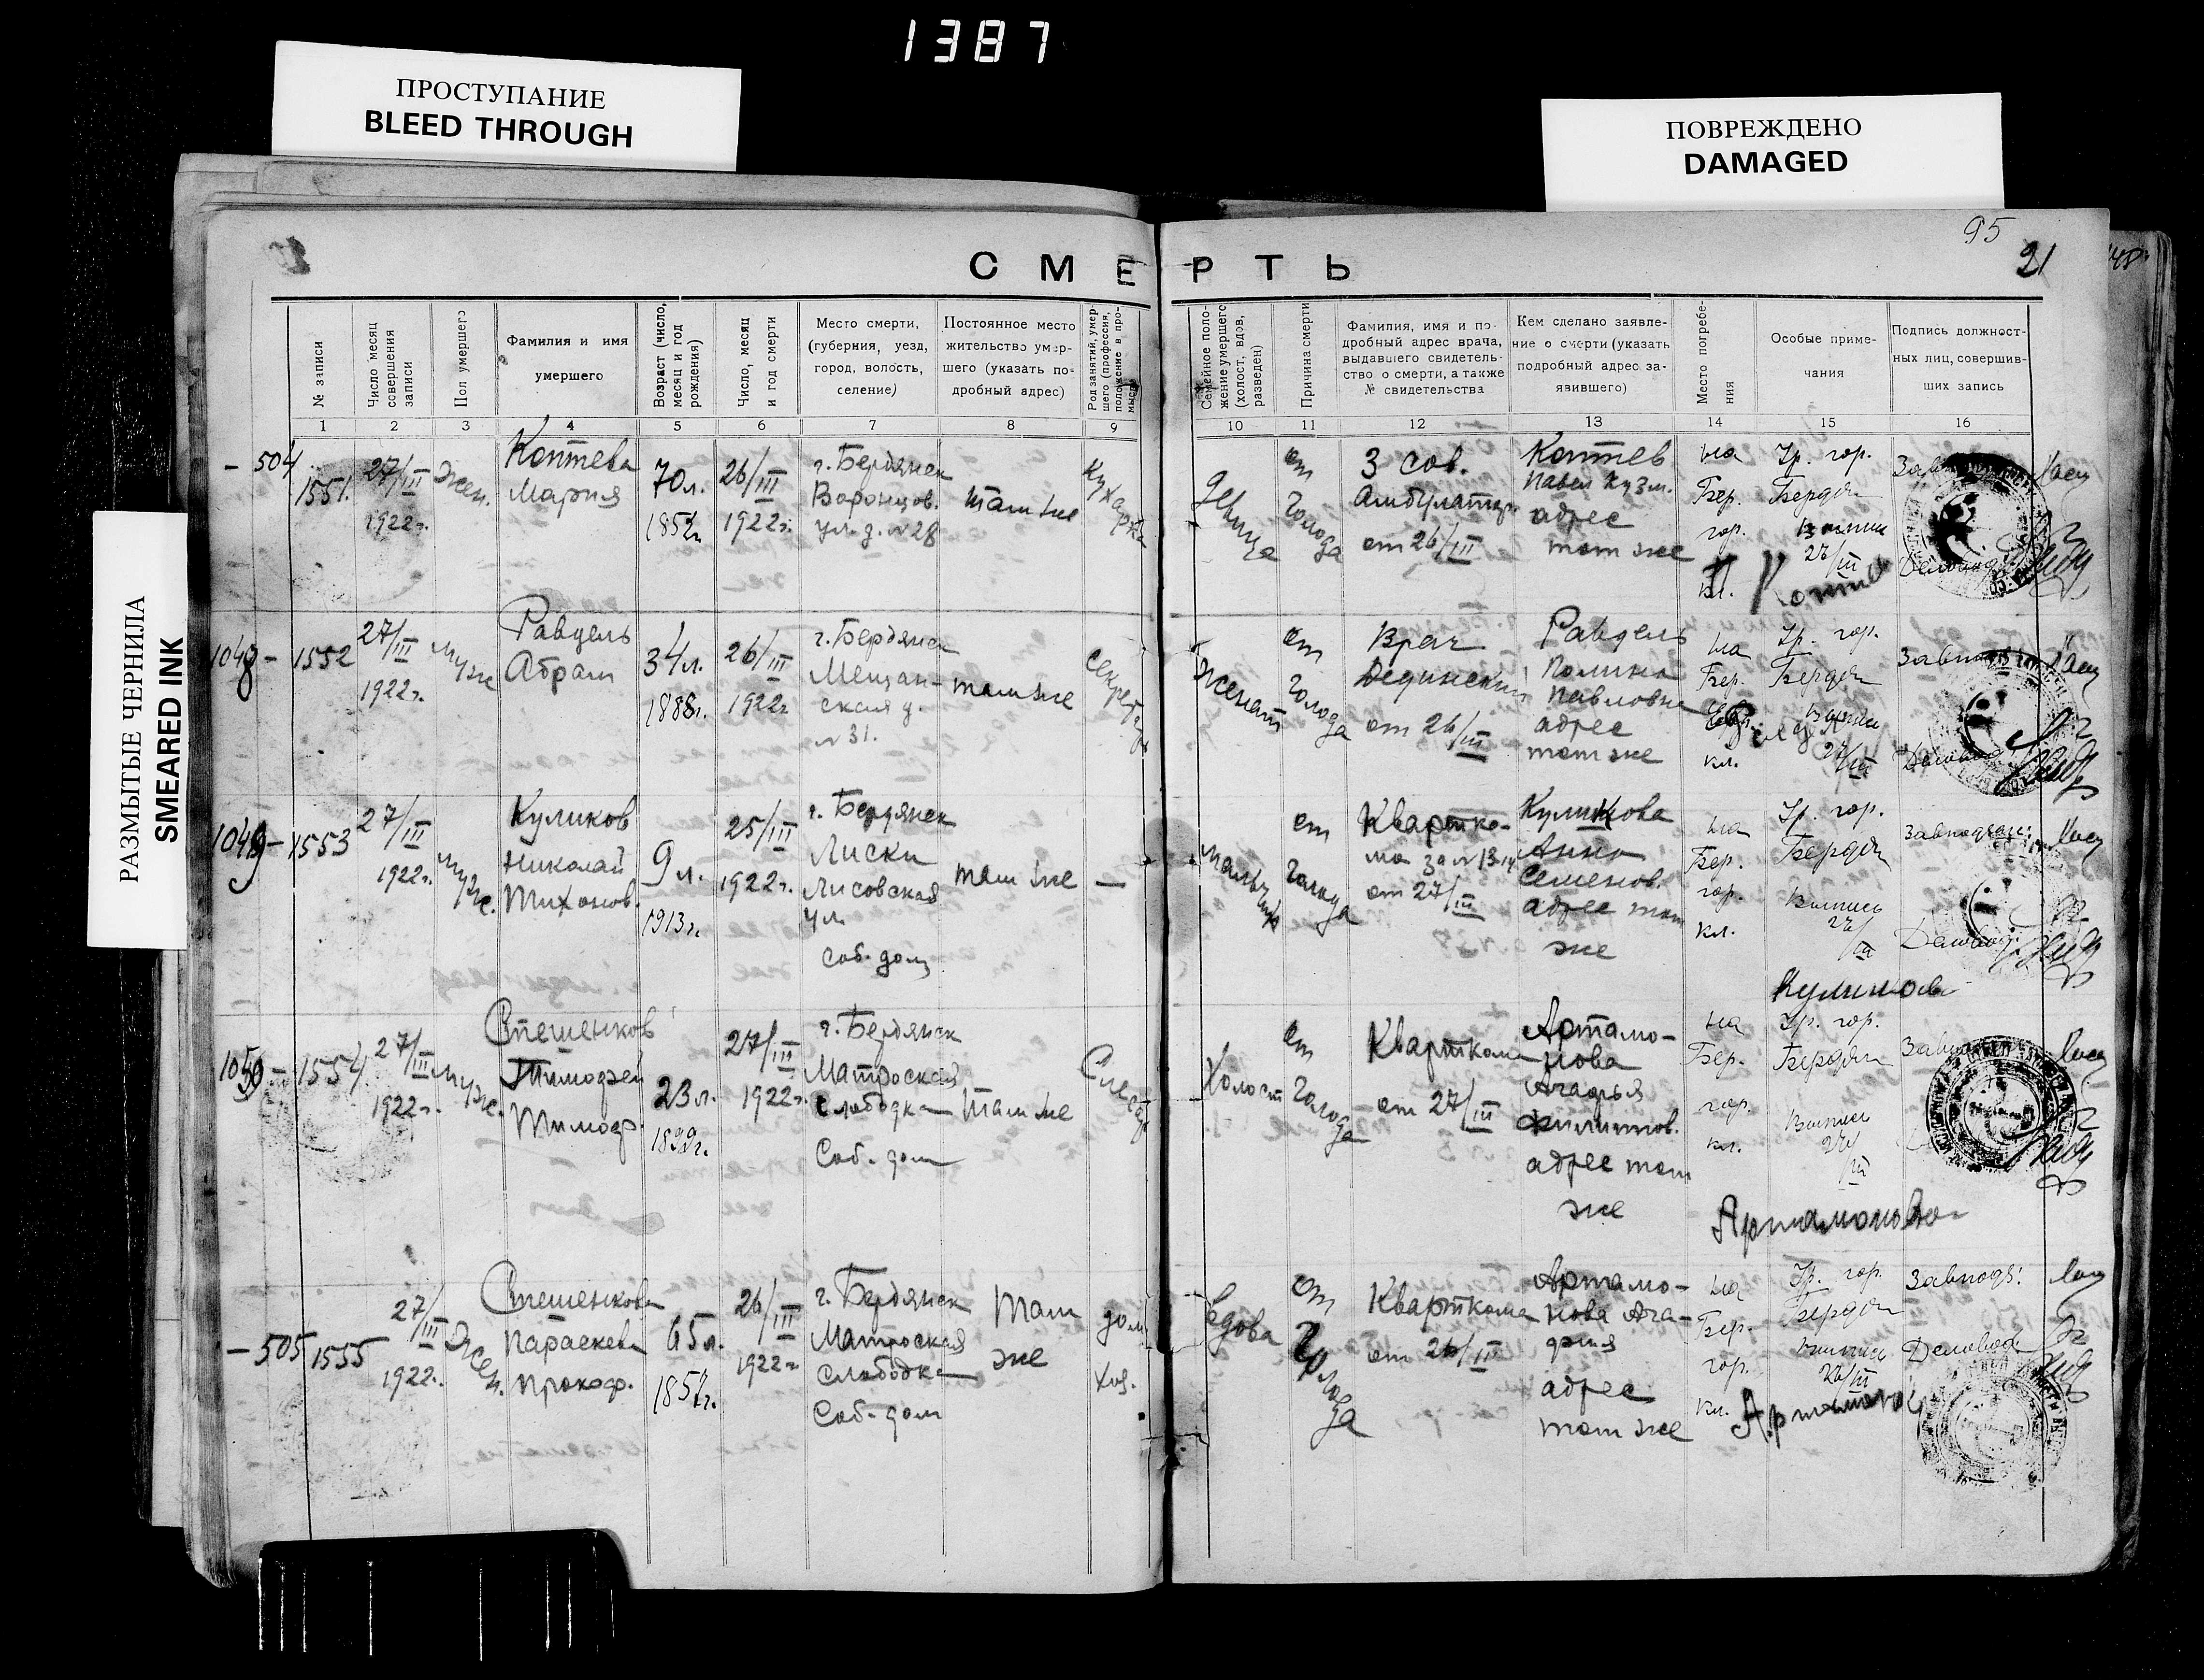 1387
ПРОСТУПАНИЕ
BLEED THROUGH
ПОВРЕЖДЕНО
DAMAGED
РАЗМЫТЫЕ ЧЕРНИЛА
SMEARED INK
95
21
СМЕРТЬ
№ записи
Число месяц совершения записи
Пол умершего
Фамилия и имя умершего
Возраст (число, месяц и год рождения)
Число, месяц и год смерти
Место смерти, (губерния, уезд, город, волость, селение)
Постоянное место жительство умершего (указать подробный адрес)
Род занятий, умершего (профессия, положение в промысле)
Семейное положение умершего (холост, вдов, разведен)
Причина смерти
Фамилия, имя и подробный адрес врача, выдавшего свидетельство о смерти, а также № свидетельства
Кем сделано заявление о смерти (указать подробный адрес заявившего)
Место погребения
Особые примечания
Подпись должностных лиц, совершивших запись
1 2 3 4 5 6 7 8 9 10 11 12 13 14 15 16
- 504
1551.
27/III
1922г.
Жен.
Коптева
Мария
70л.
1852г.
26/III
1922г.
г. Бердянск
Воронцов.
ул. д. №28
там же
Кухарка
Девица
от
голода
3 сов.
Амбулатор.
от 26/III
Коптев
Павел Кузм.
адрес
тот же
на
Бер.
гор.
кл.
Гр. гор.
Бердян
27/III
1048 -
1552
27/III
1922г.
муж
Равдель
Абрам
34л.
1888г.
26/III
1922г.
г. Бердянск
Мещан-
ская д.
№31.
там же
секретарь
женат
от
голода
Врач
от 26/III
Равдель
Полина
Павловна
адрес
тот же
на
Бер.
Евр.
кл.
Гр. гор.
Бердян
27/III
1049 -
1553
27/III
1922г.
муж.
Куликов
Николай
Тихонов.
9л.
1913г.
25/III
1922г.
г. Бердянск
Лиски
Лисовская
ул.
соб. дом
там же
—
мальчик
от
голода
Квартко-
ма
от 27/III
Куликова
Анна
Семенов.
адрес тот
же
на
Бер.
гор.
кл.
Гр. гор.
Бердян
Выпись
27/III
Куликова
1050 -
1554
27/III
1922г.
муж.
Степенков
Тимофей
Тимоф.
23л.
1899г.
27/III
1922г.
г. Бердянск
Матроская
слободка
Соб. дом
там же
Слесарь
Холост
от
голода
Квартком
от 27/III
Артамо-
нова
Агафья
Филипов.
адрес тот
же
на
Бер.
гор.
кл.
Гр. гор.
Бердян
Выпись
27/III
Артамонова
- 505
1555
27/III
1922г.
Жен.
Степенкова
Параскева
Прокоф.
65л.
1857г.
26/III
1922г.
г. Бердянск
Матроская
слободка
Соб. дом
Там
же
дом.
хоз.
Вдова
от
голода
Квартком
от 26/III
Артамо-
нова Ага-
фия
адрес
тот же
на
Бер.
гор.
кл.
Гр. гор.
Бердян